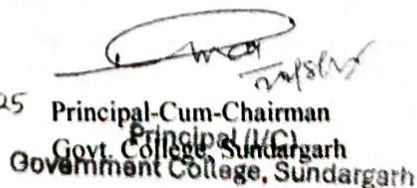 25
Principal-Cum-Chairman
Govt. College, Sundargarh
Principal (I/C)
Government College, Sundargarh